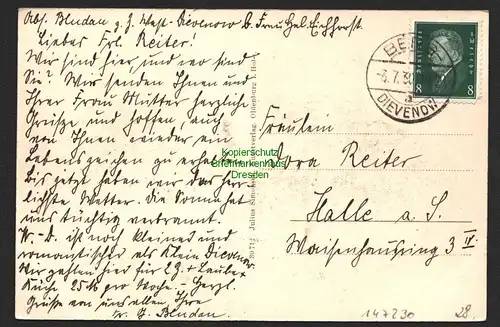 Abs. Blendau z. Z. West-Dievenow b. Frau Hel. Eichhorst.
Liebes Frl. Reiter!
Wir sind hier und wo sind
Sie? Wir senden Ihnen und
Ihrer Frau Mutter herzliche
Grüsse und hoffen auch
von Ihnen wieder ein
Lebenszeichen zu erhalten.
Bis jetzt haben wir das herr-
lichste Wetter. Die Sonne hat
uns tüchtig verbrannt.
W.-D. ist noch kleiner und
romantischer als Klein Dievenow
Wir zahlen hier für 2 Z. + Laube +
Küche 25 M pro Woche. Herzl.
Grüsse von uns allen Ihre
G. Blendau.
Julius Simonsen, Oldenburg i. Holst.
Kopierschutz
Briefmarkenhaus
Dresden
DEUTSCHES REICH
8 8
BERG
-6.7.30
a
DIEVENOW
Fräulein
Dora Reiter
Halle a. S.
Waisenhausring 3 IV.
147230 28